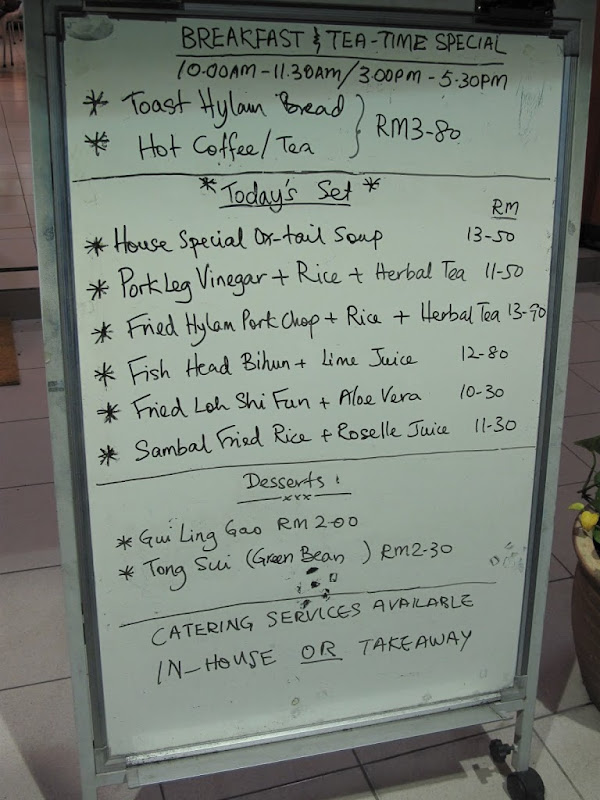 BREAKFAST & TEA-TIME SPECIAL
10.00AM-11.30AM/3.00PM-5.30PM
* Toast Hylam Bread
* Hot Coffee/Tea
RM3-80
* Today's Set *
RM
* House Special Ox-tail Soup 13-50
* Pork Leg Vinegar + Rice + Herbal Tea 11-50
* Fried Hylam Pork Chop + Rice + Herbal Tea 13-90
* Fish Head Bihun + Lime Juice 12-80
* Fried Loh Shi Fun + Aloe Vera 10-30
* Sambal Fried Rice + Roselle Juice 11-30
Desserts :
xxx
* Gui Ling Gao RM 2-00
* Tong Sui (Green Bean ) RM2-30
CATERING SERVICES AVAILABLE
IN-HOUSE OR TAKEAWAY